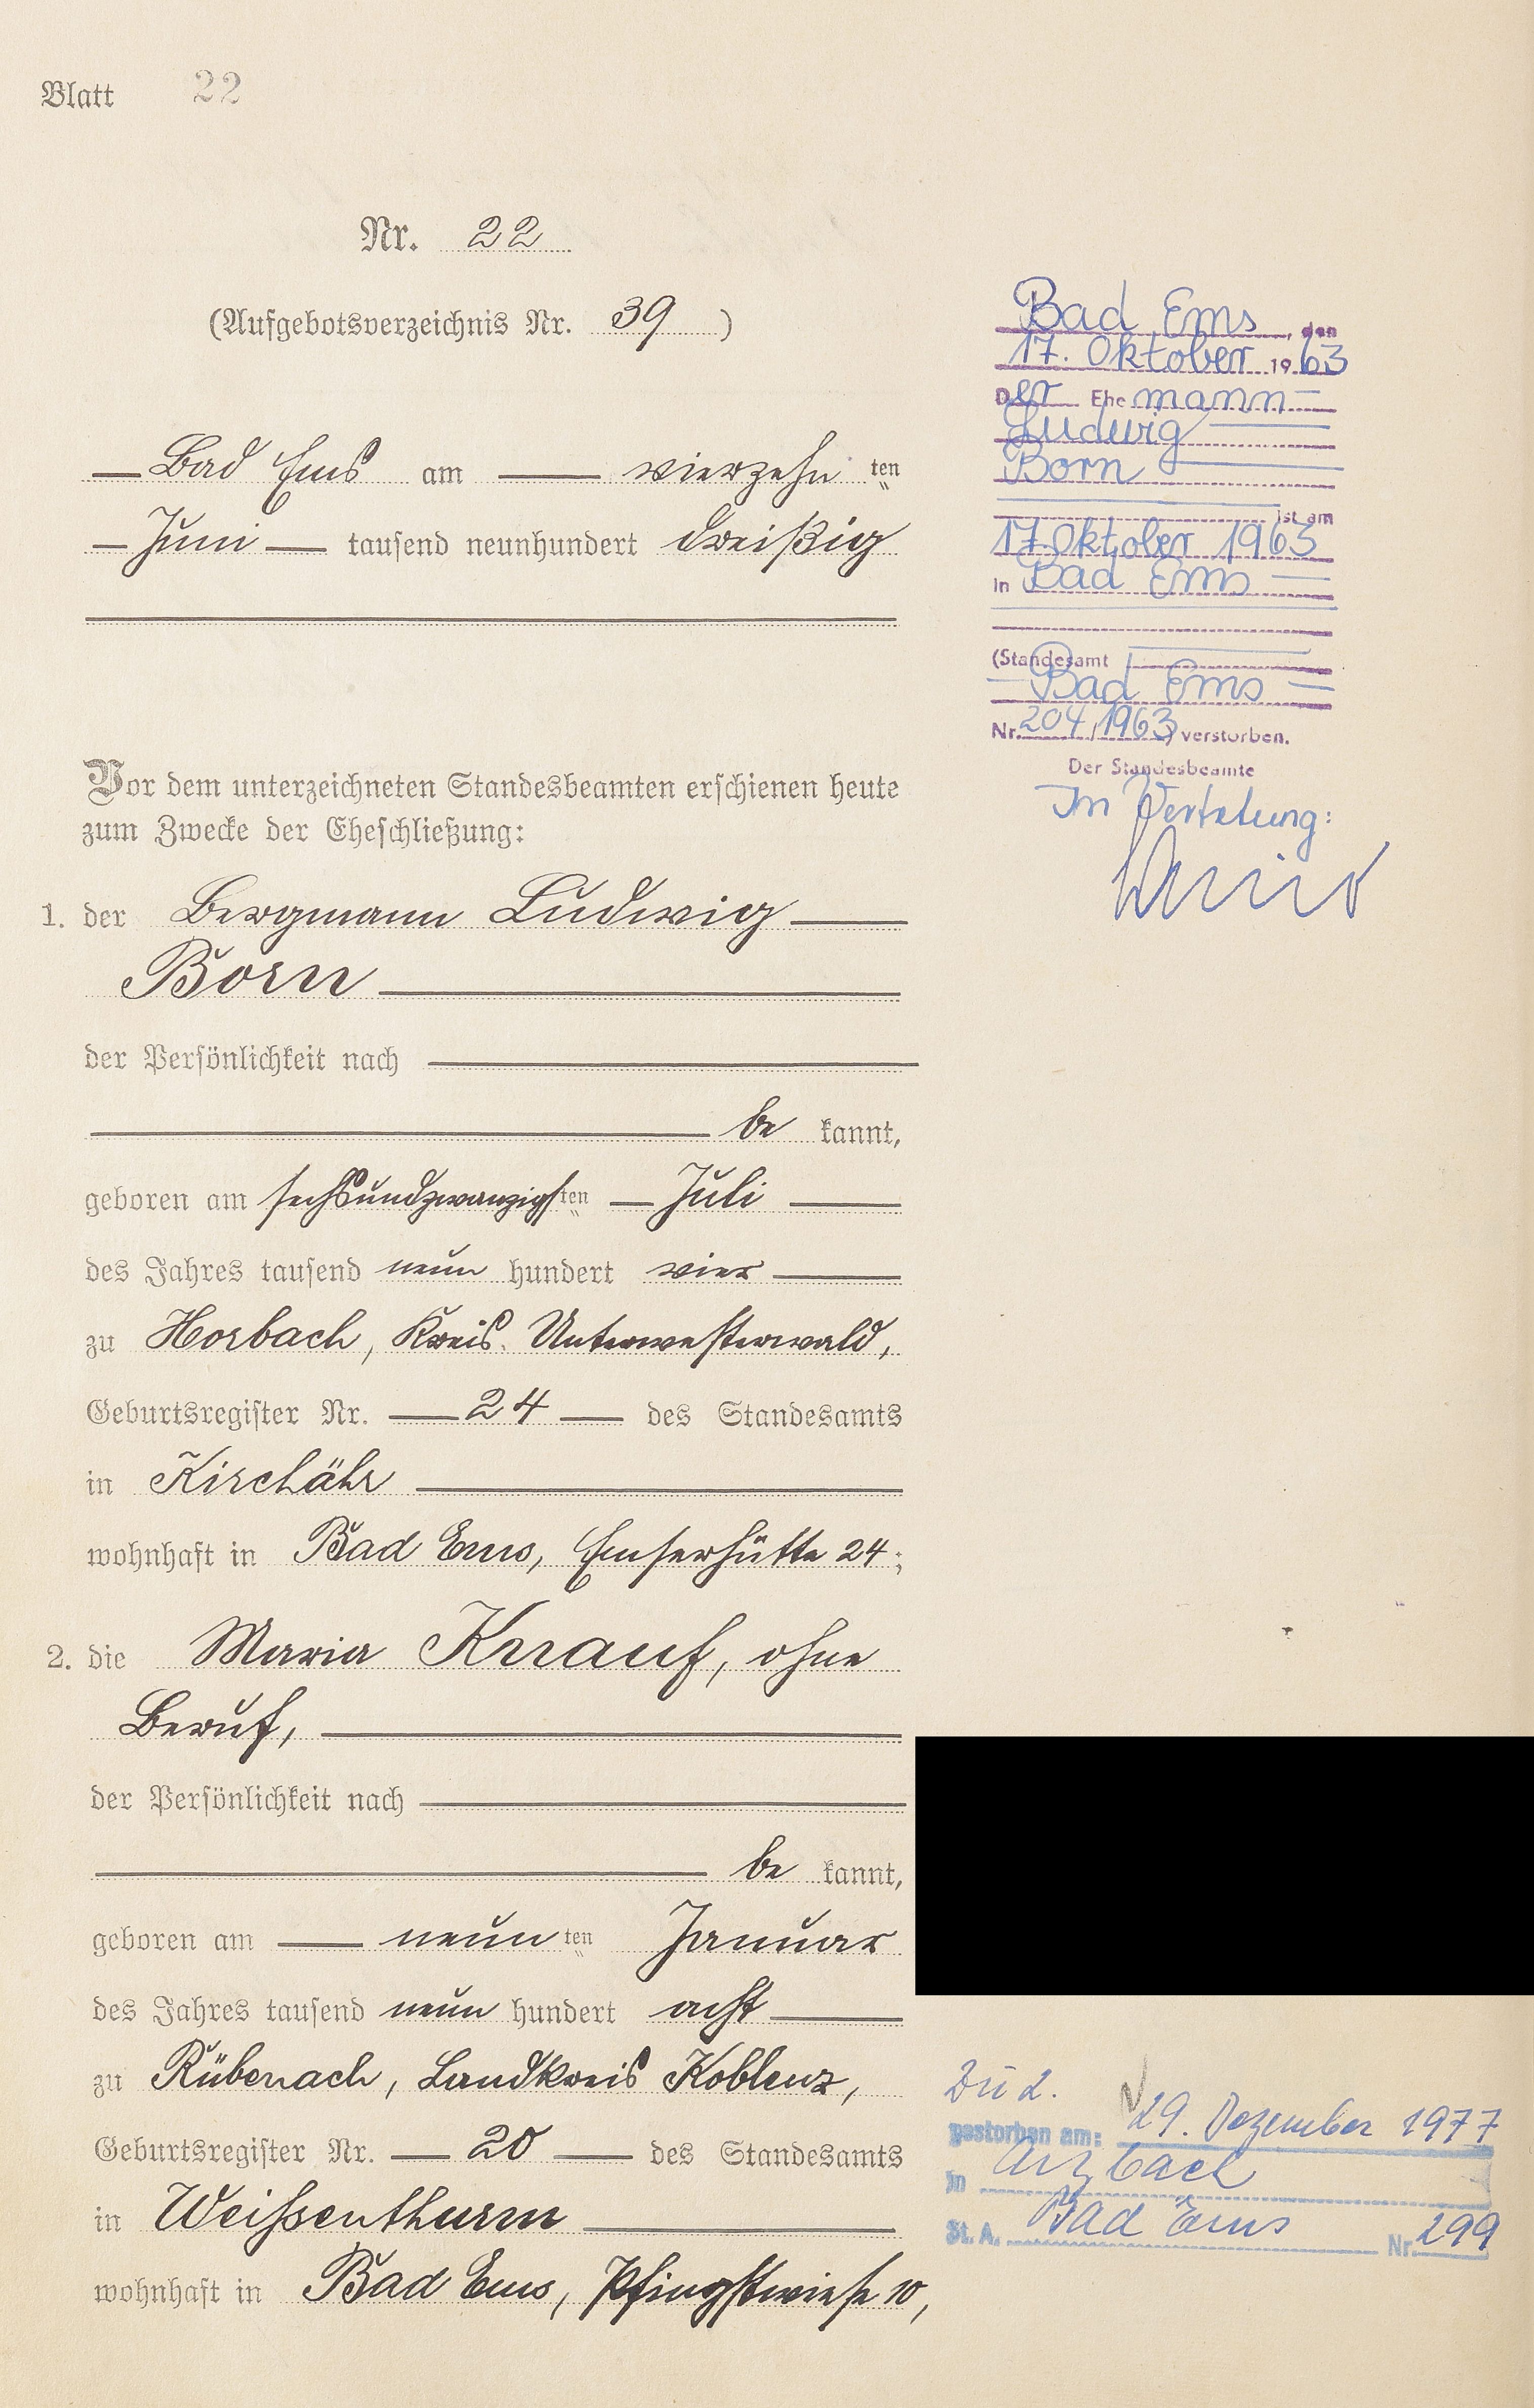 Blatt 22
Nr. 22
(Aufgebotsverzeichnis Nr. 39)
Bad Ems am vierzehn ten
Juni tausend neunhundert dreißig
Vor dem unterzeichneten Standesbeamten erschienen heute
zum Zwecke der Eheschließung:
1. der Bergmann Ludwig
Born
der Persönlichkeit nach
be kannt,
geboren am sechsundzwanzigsten Juli
des Jahres tausend neun hundert vier
zu Horbach, Kreis Unterwesterwald,
Geburtsregister Nr. 24 des Standesamts
in Kirchähr
wohnhaft in Bad Ems, Emserhütte 24;
2. die Maria Knauf, ohne
Beruf,
der Persönlichkeit nach
be kannt,
geboren am neun ten Januar
des Jahres tausend neun hundert acht
zu Rübenach, Landkreis Koblenz,
Geburtsregister Nr. 20 des Standesamts
in Weißenthurm
wohnhaft in Bad Ems, Pfingstwiese 10,
Bad Ems, den
17. Oktober 1963
Der Ehemann
Ludwig
Born
ist am
17. Oktober 1963
in Bad Ems
(Standesamt
Bad Ems
Nr. 204/1963) verstorben.
Der Standesbeamte
In Vertretung:
Zu 2.
gestorben am: 29. Dezember 1977
in Arzbach
St. A. Bad Ems Nr. 299